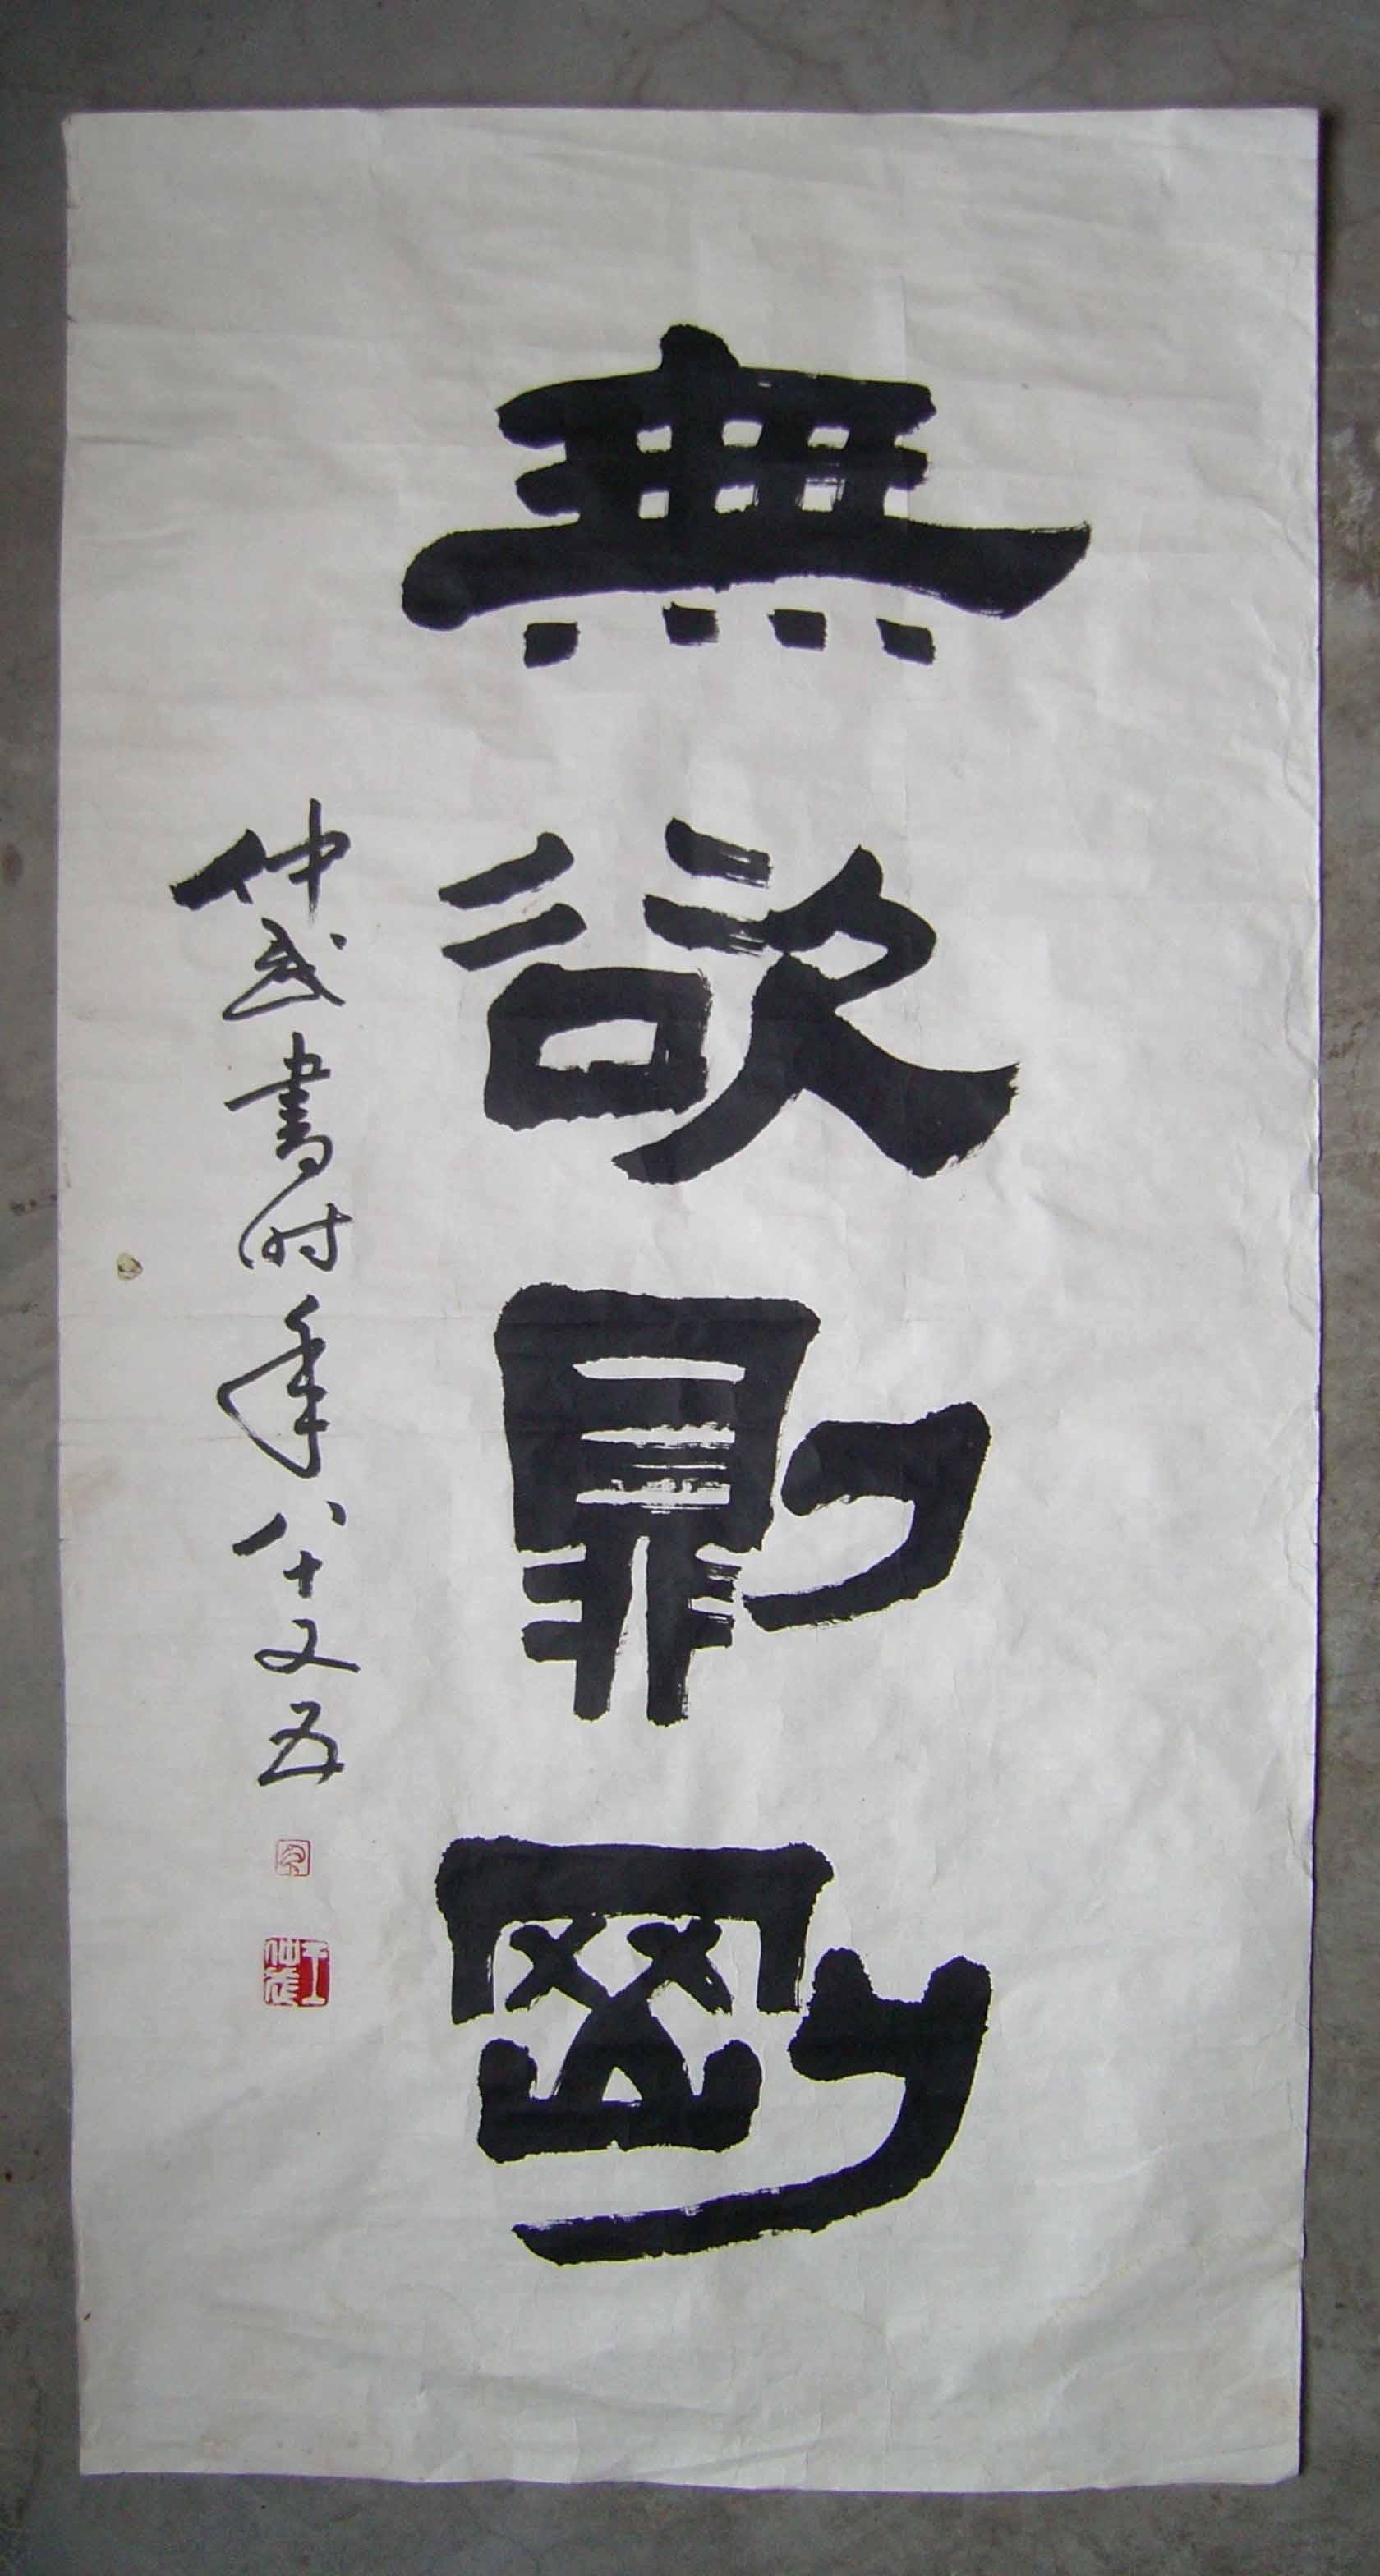 無欲則剛
仲武書时年八十又五
王仲武